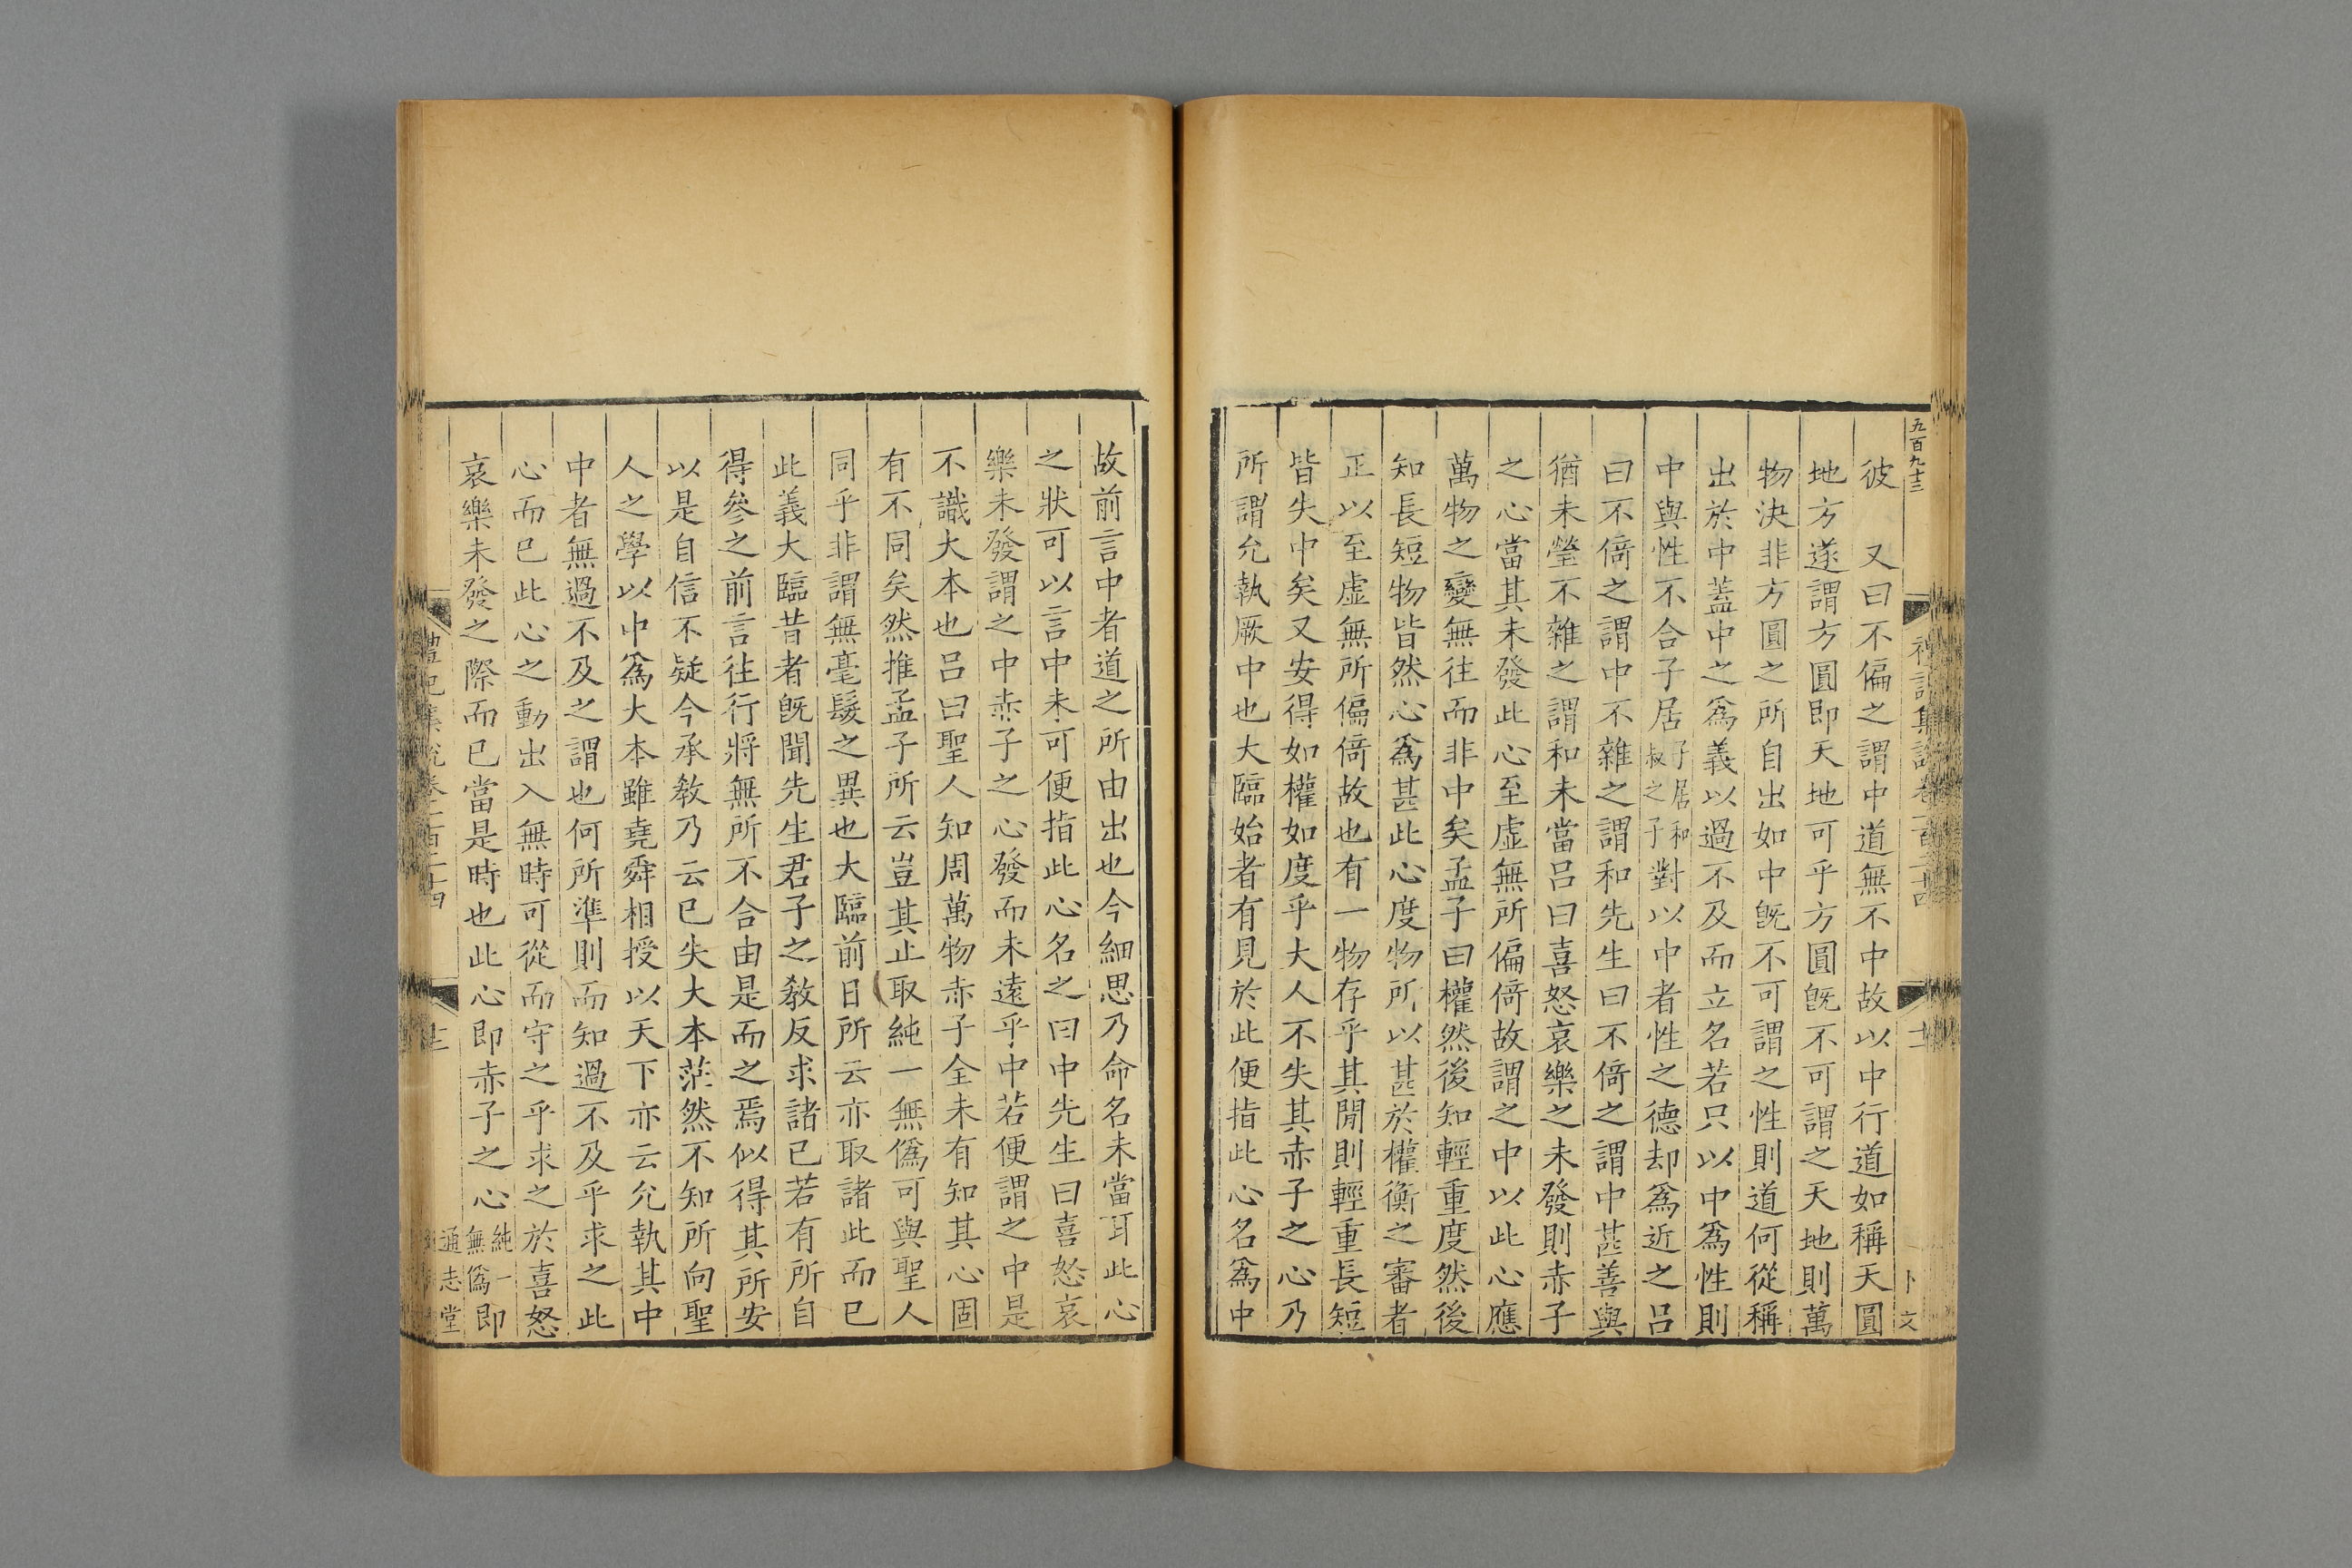 五百九十三
彼　又曰不偏之謂中道無不中故以中行道如稱天圓
地方遂謂方圓即天地可乎方圓旣不可謂之天地則萬
物決非方圓之所自出如中旣不可謂之性則道何從稱
出於中蓋中之爲義以過不及而立名若只以中爲性則
中與性不合子居子居和叔之子對以中者性之德却爲近之呂
曰不倚之謂中不雜之謂和先生曰不倚之謂中甚善與
猶未瑩不雜之謂和未當呂曰喜怒哀樂之未發則赤子
之心當其未發此心至虛無所偏倚故謂之中以此心應
萬物之變無往而非中矣孟子曰權然後知輕重度然後
知長短物皆然心爲甚此心度物所以甚於權衡之審者
正以至虛無所偏倚故也有一物存乎其閒則輕重長短
皆失中矣又安得如權如度乎大人不失其赤子之心乃
所謂允執厥中也大臨始者有見於此便指此心名爲中
禮記集說卷一百二十四
十二
卜文
故前言中者道之所由出也今細思乃命名未當耳此心
之狀可以言中未可便指此心名之曰中先生曰喜怒哀
樂未發謂之中赤子之心發而未遠乎中若便謂之中是
不識大本也呂曰聖人知周萬物赤子全未有知其心固
有不同矣然推孟子所云豈其止取純一無僞可與聖人
同乎非謂無毫髮之異也大臨前日所云亦取諸此而已
此義大臨昔者旣聞先生君子之敎反求諸已若有所自
得參之前言往行將無所不合由是而之焉似得其所安
以是自信不疑今承敎乃云已失大本茫然不知所向聖
人之學以中爲大本雖堯舜相授以天下亦云允執其中
中者無過不及之謂也何所準則而知過不及乎求之此
心而已此心之動出入無時可從而守之乎求之於喜怒
哀樂未發之際而已當是時也此心即赤子之心純一無僞即
禮記集說卷一百二十四
通志堂